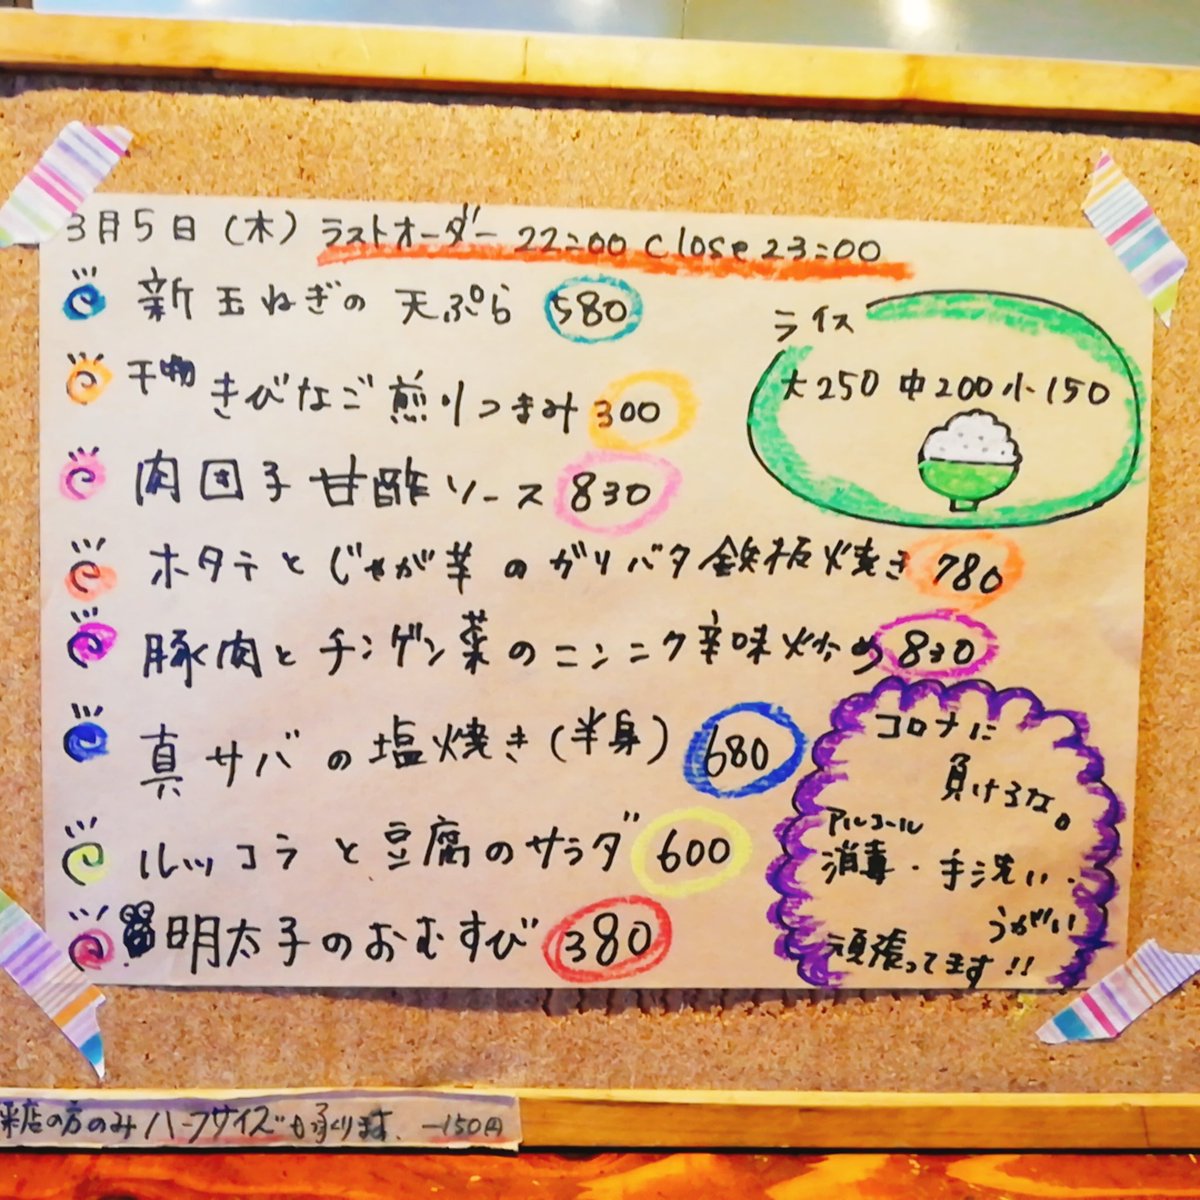 3月5日(木)ラストオーダー 22:00 Close 23:00
新玉ねぎの天ぷら 580
干物 きびなご煎りつまみ 300
肉団子 甘酢ソース 830
ホタテとじゃが芋のガリバタ鉄板焼き 780
豚肉とチンゲン菜のニンニク辛味炒め 830
真サバの塩焼き(半身) 680
ルッコラと豆腐のサラダ 600
明太子のおむすび 380
ライス
大250 中200 小150
コロナに
負けるな。
アルコール
消毒・手洗い・
うがい
頑張ってます!!
来店の方のみハーフサイズも承ります。 -150円